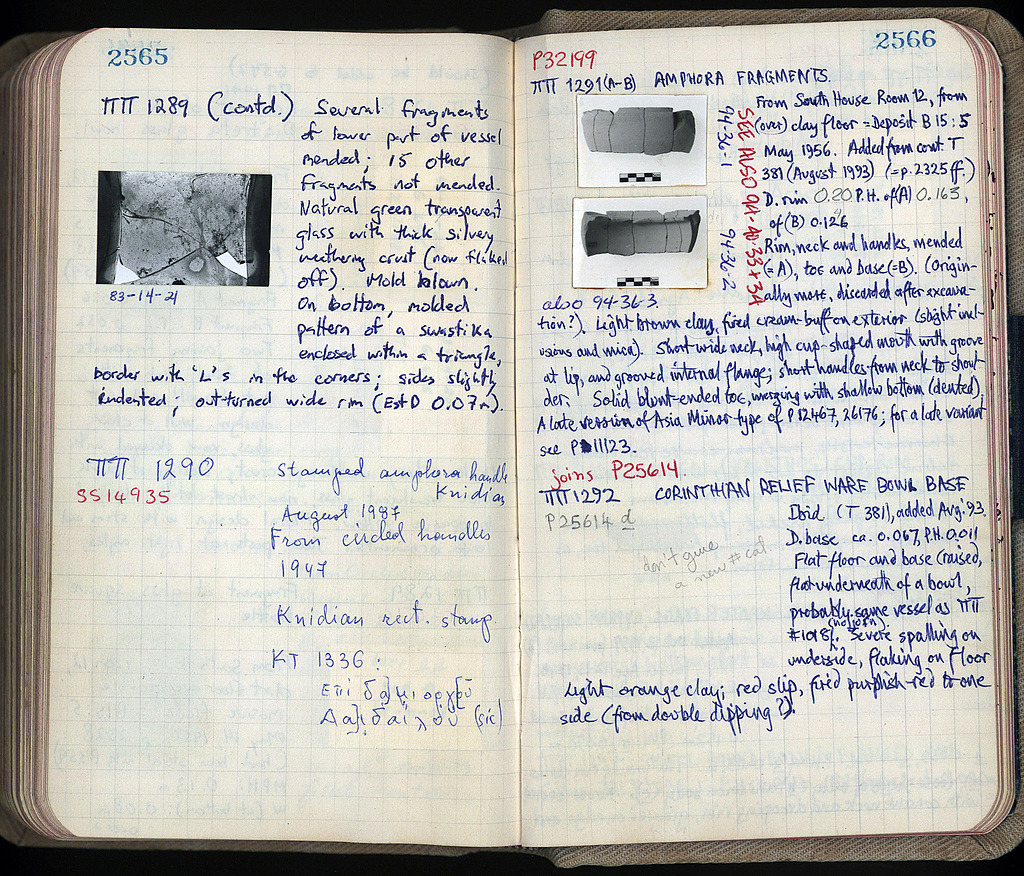 2565
ΠΠ 1289 (contd.) Several fragments
of lower part of vessel
mended; 15 other
fragments not mended.
Natural green transparent
glass with thick silvery
weathering crust (now flaked
off). Mold blown.
On bottom, molded
pattern of a swastika
enclosed within a triangle,
border with 'L's in the corners; sides slightly
indented; out-turned wide rim (Est D 0.07m).
83-14-21
ΠΠ 1290 Stamped amphora handle
SS14935 Knidian
August 1987
From circled handles
1947
Knidian rect. stamp
KT 1336:
Επὶ δαμιοργοῦ
(sic)
2566
P32199
ΠΠ 1291 (A-B) AMPHORA FRAGMENTS.
94-36-1
94-36-2
SEE ALSO
From South House Room 12, from
(over) clay floor = Deposit B 15:5
May 1956. Added from cont. T
381 (August 1993) (=p.2325ff.)
D. rim 0.20 P.H. of (A) 0.163,
of (B) 0.126
Rim, neck and handles, mended
(=A), toe and base (=B). (Origin-
ally more, discarded after excava-
also 94-36-3.
tion?). Light brown clay, fired cream-buff on exterior (slight incl-
usions and mica). Short wide neck, high cup-shaped mouth with groove
at lip, and grooved internal flange; short handles from neck to shoul-
der. Solid blunt-ended toe, merging with shallow bottom (dented).
A late version of Asia Minor type of P 12467, 26176; for a late variant
see P 11123.
joins P25614.
ΠΠ 1292 CORINTHIAN RELIEF WARE BOWL BASE
P25614 d
don't give
a new # cat.
Ibid (T 381), added Aug. '93.
D. base ca. 0.067, P.H. 0.011
Flat floor and base (raised,
flat underneath of a bowl,
probably same vessel as ΠΠ
(no join)
#1018. Severe spalling on
underside, flaking on floor
Light orange clay; red slip, fired purplish-red to one
side (from double dipping?).